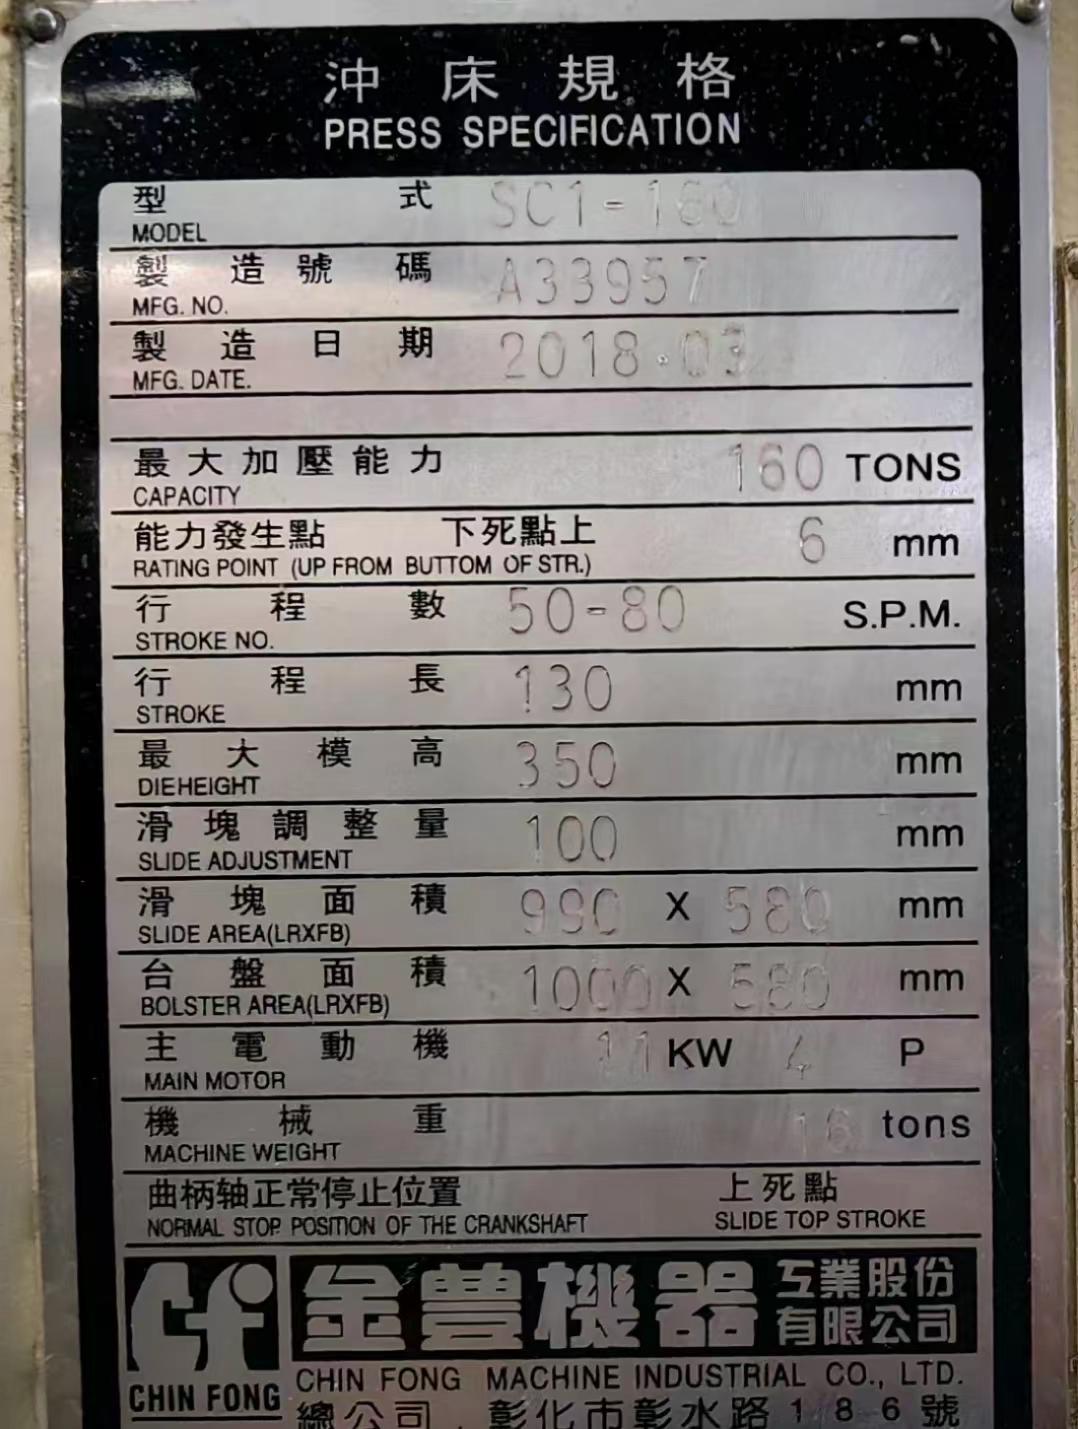 沖床規格
PRESS SPECIFICATION
型式 SC1-160
MODEL
製造號碼 A33957
MFG. NO.
製造日期 2018.03
MFG. DATE.
最大加壓能力 160 TONS
CAPACITY
能力發生點 下死點上 6 mm
RATING POINT (UP FROM BUTTOM OF STR.)
行程數 50-80 S.P.M.
STROKE NO.
行程長 130 mm
STROKE
最大模高 350 mm
DIEHEIGHT
滑塊調整量 100 mm
SLIDE ADJUSTMENT
滑塊面積 990 X 580 mm
SLIDE AREA(LRXFB)
台盤面積 1000 X 580 mm
BOLSTER AREA(LRXFB)
主電動機 11 KW 4 P
MAIN MOTOR
機械重 16 tons
MACHINE WEIGHT
曲柄轴正常停止位置 上死點
NORMAL STOP POSITION OF THE CRANKSHAFT SLIDE TOP STROKE
金豊機器 工業股份有限公司
CHIN FONG
CHIN FONG MACHINE INDUSTRIAL CO., LTD.
總公司．彰化市彰水路186號